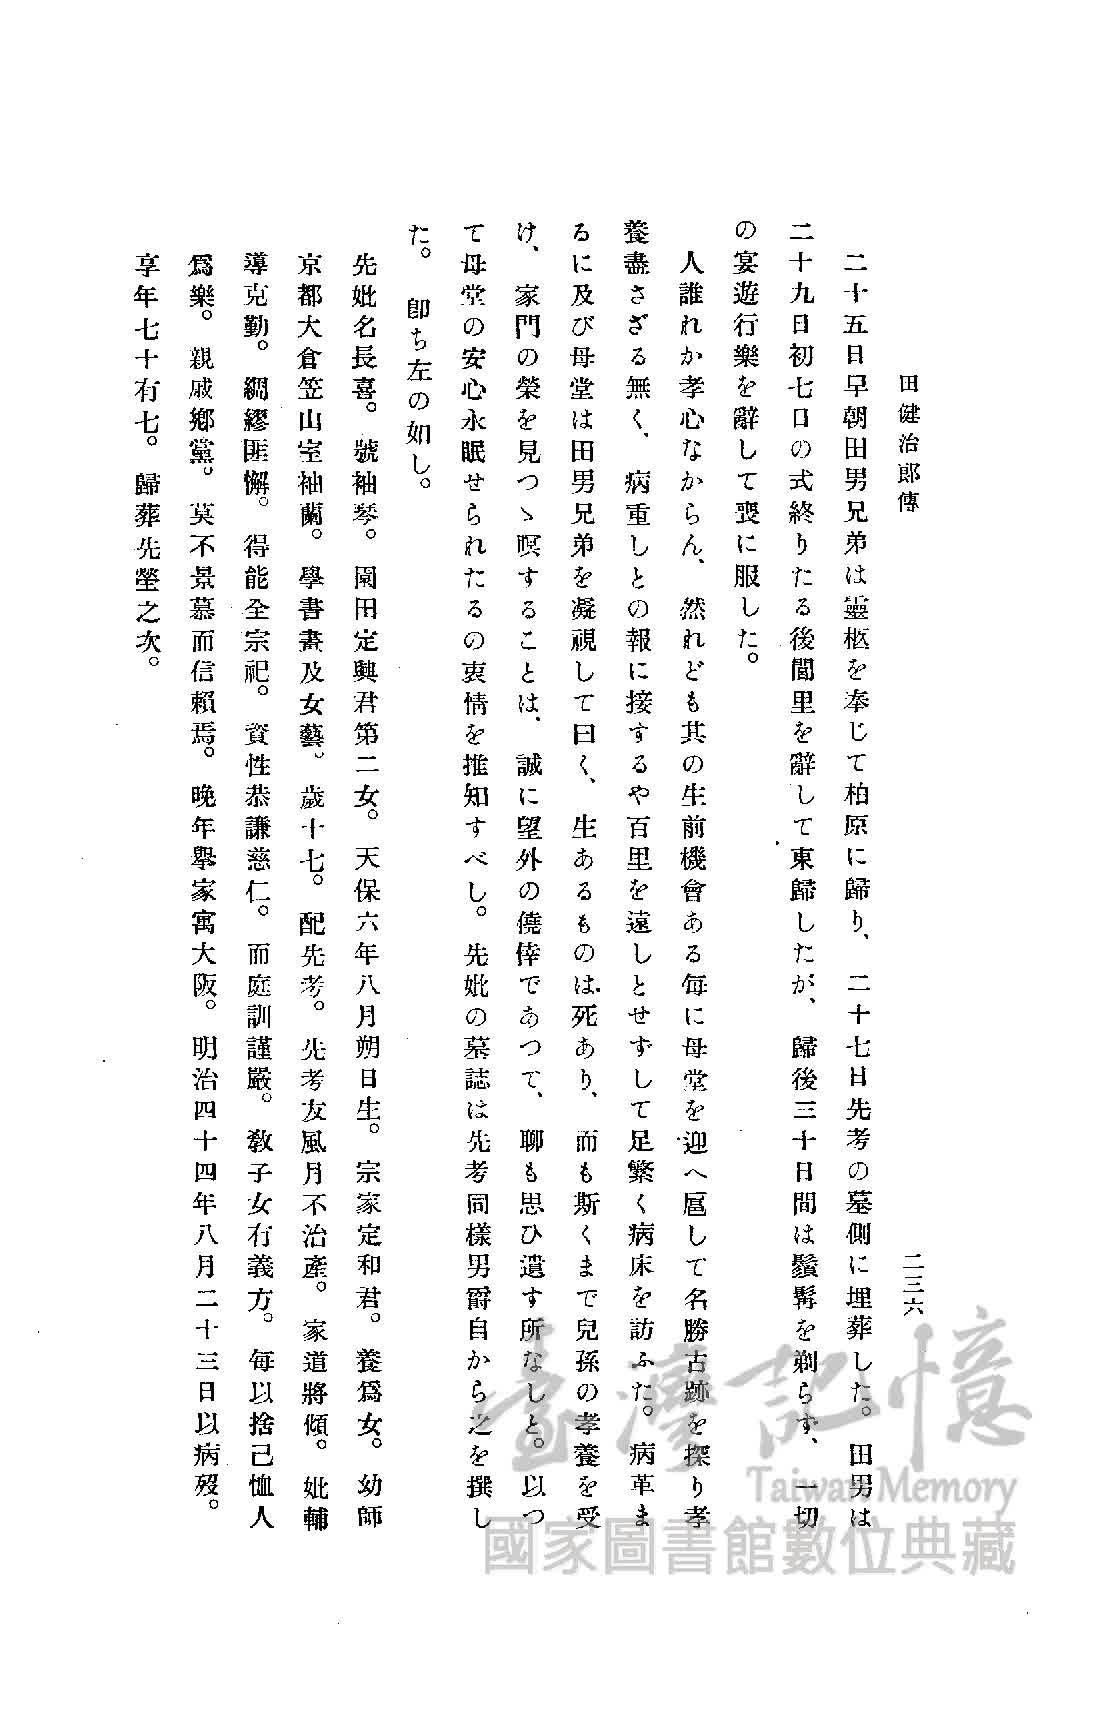 田健治郎傳
二三六
二十五日早朝田男兄弟は靈柩を奉じて柏原に歸り、二十七日先考の墓側に埋葬した。田男は
二十九日初七日の式終りたる後閭里を辭して東歸したが、歸後三十日間は鬚髯を剃らず、一切
の宴遊行樂を辭して喪に服した。
人誰れか孝心なからん、然れども其の生前機會ある每に母堂を迎へ扈して名勝古跡を探り孝
養盡さざる無く、病重しとの報に接するや百里を遠しとせずして足繁く病床を訪ふた。病革ま
るに及び母堂は田男兄弟を凝視して曰く、生あるものは死あり、而も斯くまで兒孫の孝養を受
け、家門の榮を見つゝ瞑することは、誠に望外の僥倖であつて、聊も思ひ遺す所なしと。以つ
て母堂の安心永眠せられたるの衷情を推知すべし。先妣の墓誌は先考同樣男爵自から之を撰し
た。卽ち左の如し。
先妣名長喜。號袖琴。園田定興君第二女。天保六年八月朔日生。宗家定和君。養爲女。幼師
京都大倉笠山室袖蘭。學書畫及女藝。歲十七。配先考。先考友風月不治產。家道將傾。妣輔
導克勤。綢繆匪懈。得能全宗祀。資性恭謙慈仁。而庭訓謹嚴。敎子女有義方。每以捨己恤人
爲樂。親戚鄕黨。莫不景慕而信賴焉。晚年擧家寓大阪。明治四十四年八月二十三日以病歿。
享年七十有七。歸葬先塋之次。
臺灣記憶
Taiwan Memory
國家圖書館數位典藏